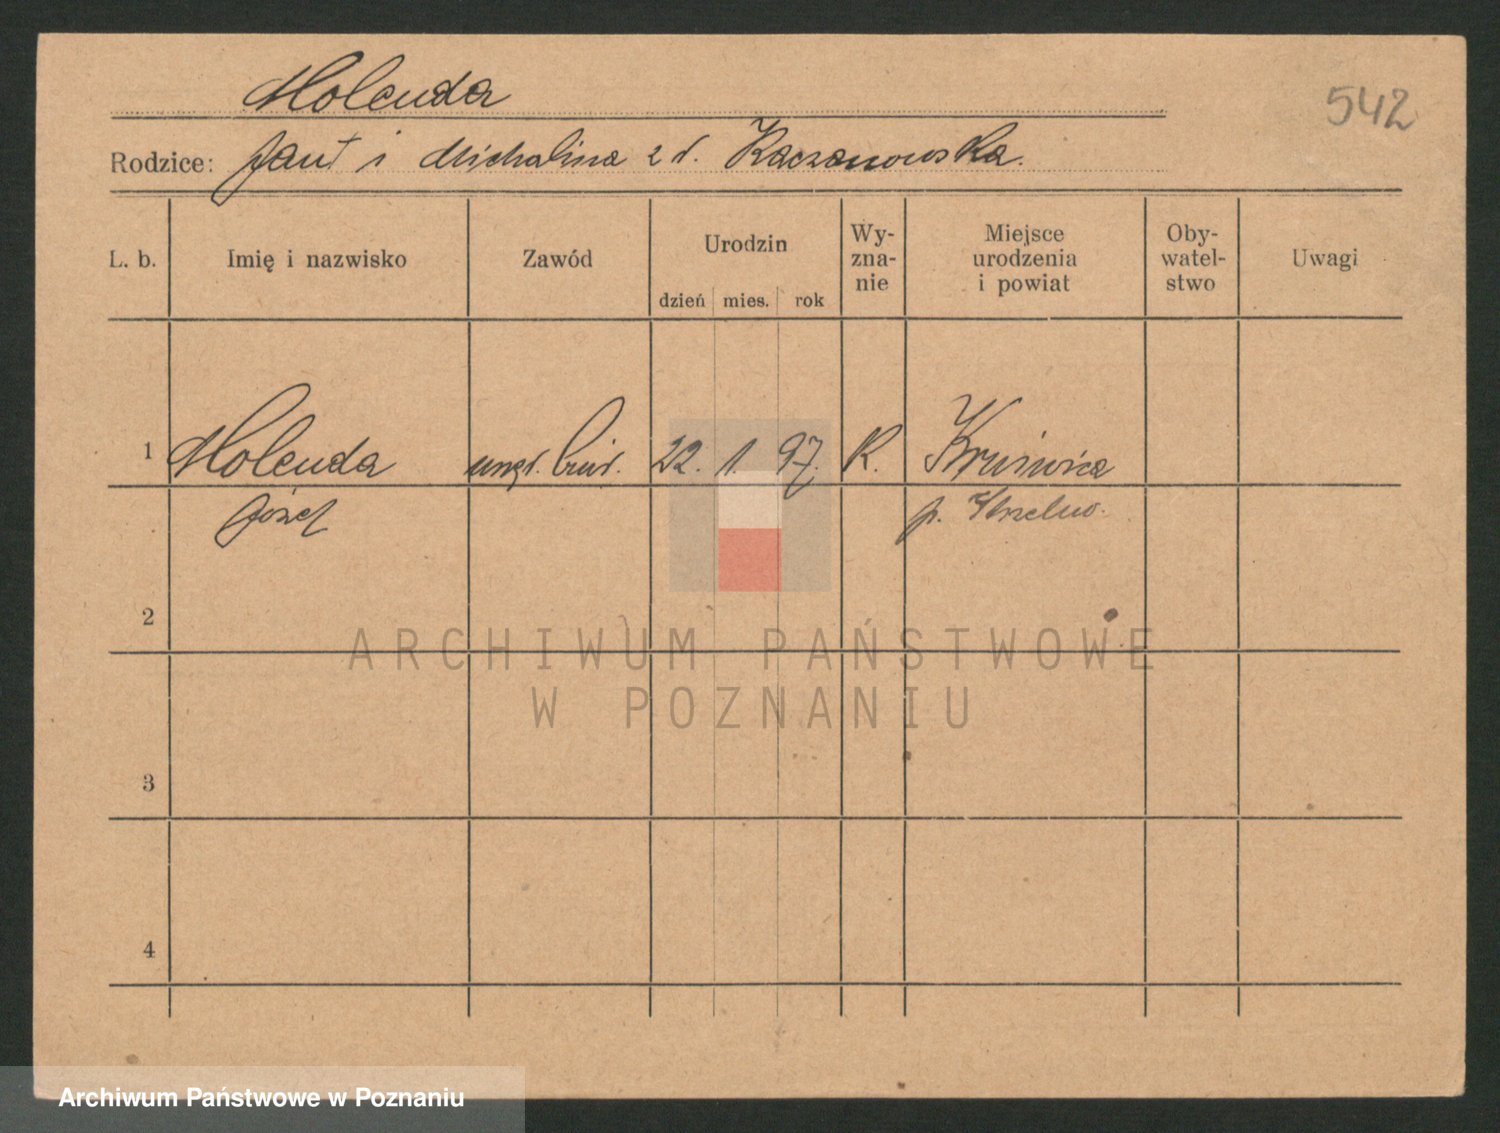 Molenda
542
Rodzice: Jan † i Michalina z d. Kaczanowska.
L. b. Imię i nazwisko Zawód Urodzin dzień mies. rok Wy-zna-nie Miejsce urodzenia i powiat Oby-watel-stwo Uwagi
1 Molenda urzęd. 22. 1. 97. K. Kruświca
Józef p. Strzelno.
2
ARCHIWUM PAŃSTWOWE
W POZNANIU
3
4
Archiwum Państwowe w Poznaniu